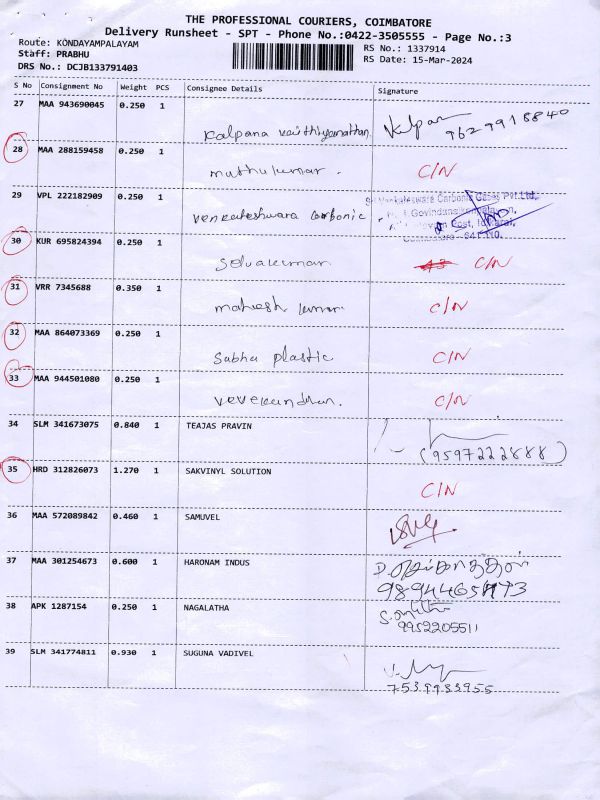 THE PROFESSIONAL COURIERS, COIMBATORE
Delivery Runsheet - SPT - Phone No.:0422-3505555 - Page No.:3
Route: KONDAYAMPALAYAM
RS No.: 1337914
Staff: PRABHU
RS Date: 15-Mar-2024
DRS No.: DCJB133791403
S No Consignment No Weight PCS Consignee Details Signature
27 MAA 943690045 0.250 1
Kalpana Vaithiyanathan Kalpana
9629918840
28 MAA 288159458 0.250 1
muthukumar. C/N
29 VPL 222182909 0.250 1
venkateshwara carbonic Sri Venkateswara Carbonic Gases Pvt.Ltd.,
30 KUR 695824394 0.250 1
Selvakumar C/N
31 VRR 7345688 0.350 1
mahesh kumar C/N
32 MAA 864073369 0.250 1
Sabha plastic C/N
33 MAA 944501080 0.250 1
C/N
34 SLM 341673075 0.840 1 TEAJAS PRAVIN
(9597222888)
35 HRD 312826073 1.270 1 SAKVINYL SOLUTION
C/N
36 MAA 572089842 0.460 1 SAMUVEL
37 MAA 301254673 0.600 1 HARONAM INDUS
38 APK 1287154 0.250 1 NAGALATHA
9952205511
39 SLM 341774811 0.930 1 SUGUNA VADIVEL
7539983955